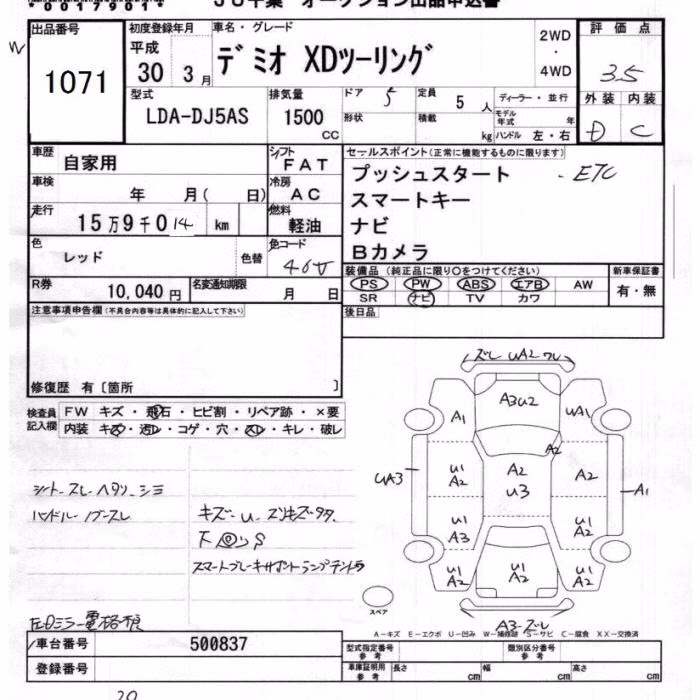 出品番号
1071
初度登録年月
平成
30 3月
車名・グレード
デミオ XDツーリング
2WD
・
4WD
評価点
3.5
外装 内装
D C
型式
LDA-DJ5AS
排気量
1500
CC
ドア 5
定員 5人
ディーラー・並行
形状
積載 kg
モデル年式 年
ハンドル 左・右
車歴 自家用
シフト FAT
車検 年 月( 日)
冷房 AC
走行 15万9千014 km
燃料 軽油
色 レッド 色替
色コード 46V
R券 10,040円
名変通知期限 月 日
セールスポイント(正常に機能するものに限ります)
プッシュスタート ・ETC
スマートキー
ナビ
Bカメラ
装備品(純正品に限り○をつけてください)
PS PW ABS エアB AW
SR ナビ TV カワ
新車保証書
有・無
後日品
注意事項申告欄(不具合内容等は具体的に記入して下さい)
修復歴 有〔箇所 〕
検査員記入欄
FW キズ・飛石・ヒビ割・リペア跡・×要
内装 キズ・汚レ・コゲ・穴・スレ・キレ・破レ
シートスレヘタリ・シミ
ハンドル・ノブスレ
キズ・U
スマートブレーキサポートランプテントウ
ズレ UA2 ワレ
A1
A3U2
UA1
A2
UA3
U1
A2
A2
U3
A2
A1
U1
A3
U1
A2
U1
A2
A2
U1
A2
A3・ズレ
スペア
A-キズ E-エクボ U-凹み W-補修跡 S-サビ C-腐食 XX-交換済
車台番号 500837
登録番号
型式指定番号
参考
類別区分番号
参考
車庫証明用
参考
長さ cm
幅 cm
高さ cm
20